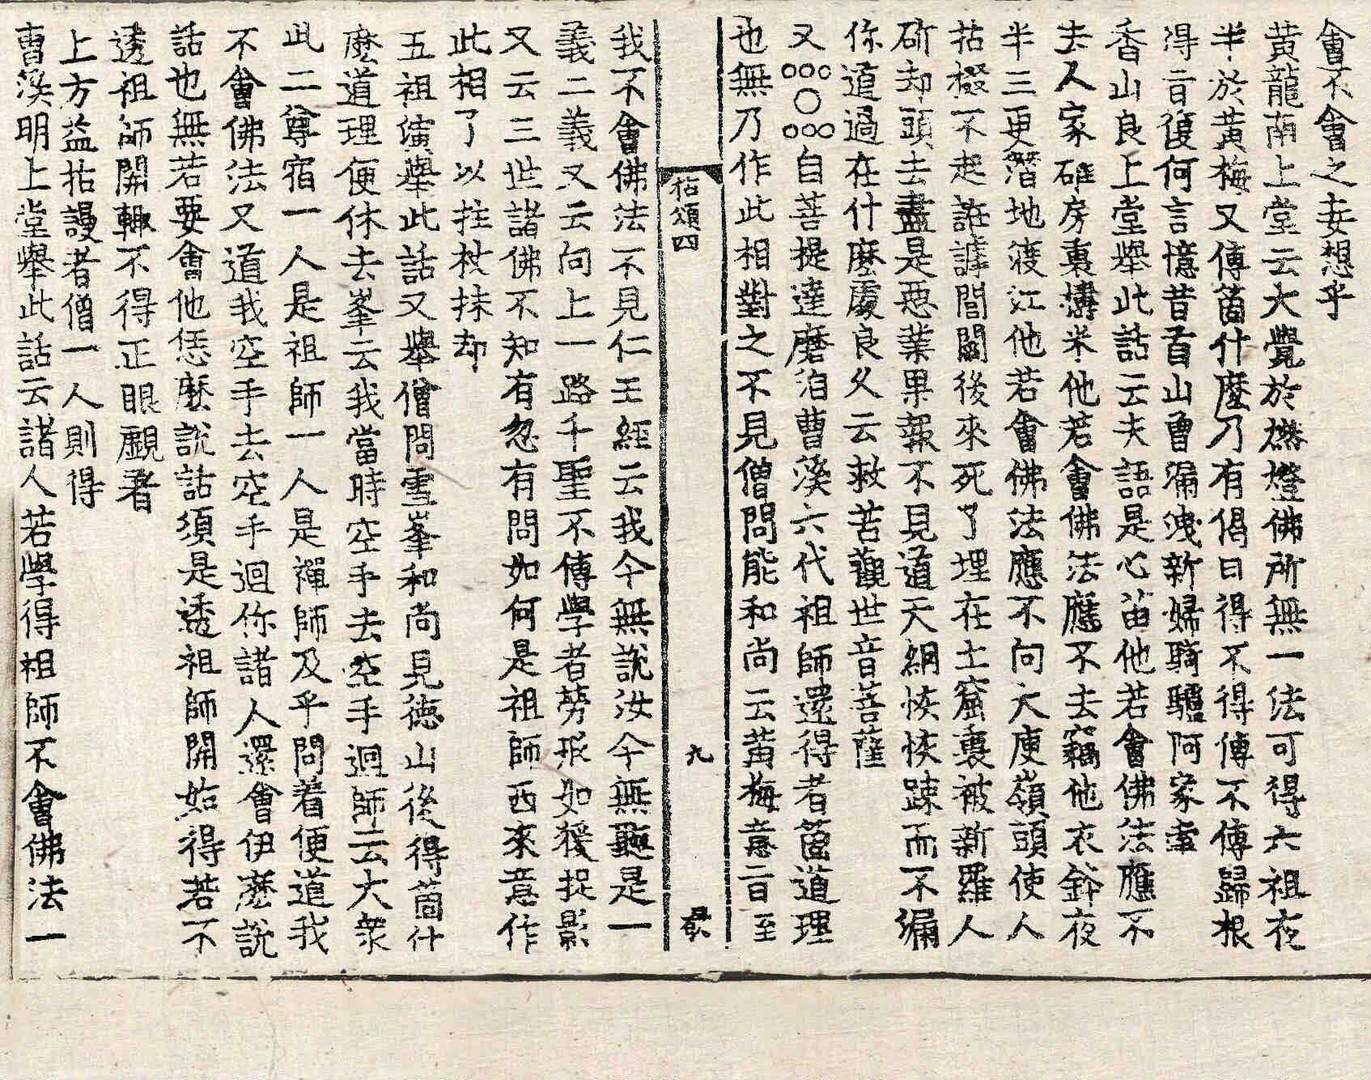 會不會之妄想乎
黃龍南上堂云大覺於燃燈佛所無一法可得六祖夜
半於黃梅又傳箇什麼乃有偈曰得不得傳不傳歸根
得旨復何言憶昔首山曾漏洩新婦騎驢阿家牽
香山良上堂擧此話云夫語是心苗他若會佛法應不
去人家碓房裏㨶米他若會佛法應不去竊他衣鉢夜
半三更潛地渡江他若會佛法應不向大庾嶺頭使人
拈掇不起詐謼閭閻後來死了埋在土窟裏被新羅人
斫却頭去盡是惡業果報不見道天網恢恢踈而不漏
你道過在什麼處良久云救苦觀世音菩薩
又○○○○○○○自菩提達磨洎曹溪六代祖師還得者箇道理
也無乃作此相對之不見僧問能和尚云黃梅意旨至
拈頌四
九
我不會佛法不見仁王經云我今無說汝今無聽是一
義二義又云向上一路千聖不傳學者勞形如猨捉影
又云三世諸佛不知有忽有問如何是祖師西來意作
此相了以拄杖抹却
五祖演擧此話又擧僧問雪峯和尚見德山後得箇什
麽道理便休去峯云我當時空手去空手迴師云大衆
此二尊宿一人是祖師一人是禪師及乎問着便道我
不會佛法又道我空手去空手迴你諸人還會伊麽說
話也無若要會他恁麽說話須是透祖師關始得若不
透祖師關輙不得正眼覰着
上方益拈謾者僧一人則得
曹溪明上堂擧此話云諸人若學得祖師不會佛法一